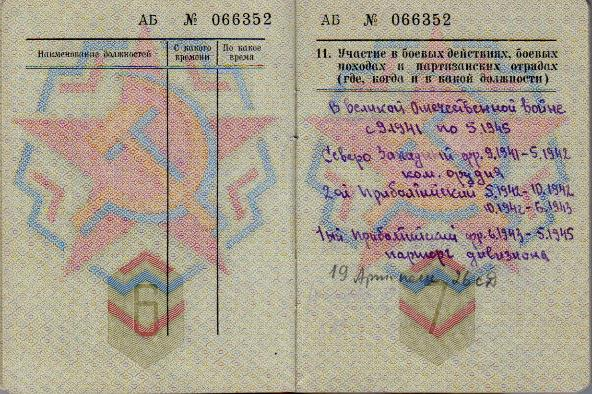 АБ № 066352
Наименование должностей
С какого времени
По какое время
6
АБ № 066352
11. Участие в боевых действиях, боевых
походах и партизанских отрядах
(где, когда и в какой должности)
В Великой Отечественной войне
с 9.1941 по 5.1945
Северо Западный фр. 9.1941-5.1942
ком. орудия
2ой Прибалтийский 5.1942-10.1942
10.1942-6.1943
1ый Прибалтийский фр. 6.1943-5.1945
парторг дивизиона
19 Арт полк 26 сд
7